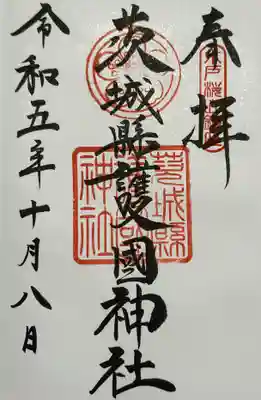 奉拝
茨城縣護國神社
茨城縣護國神社
令和五年十月八日